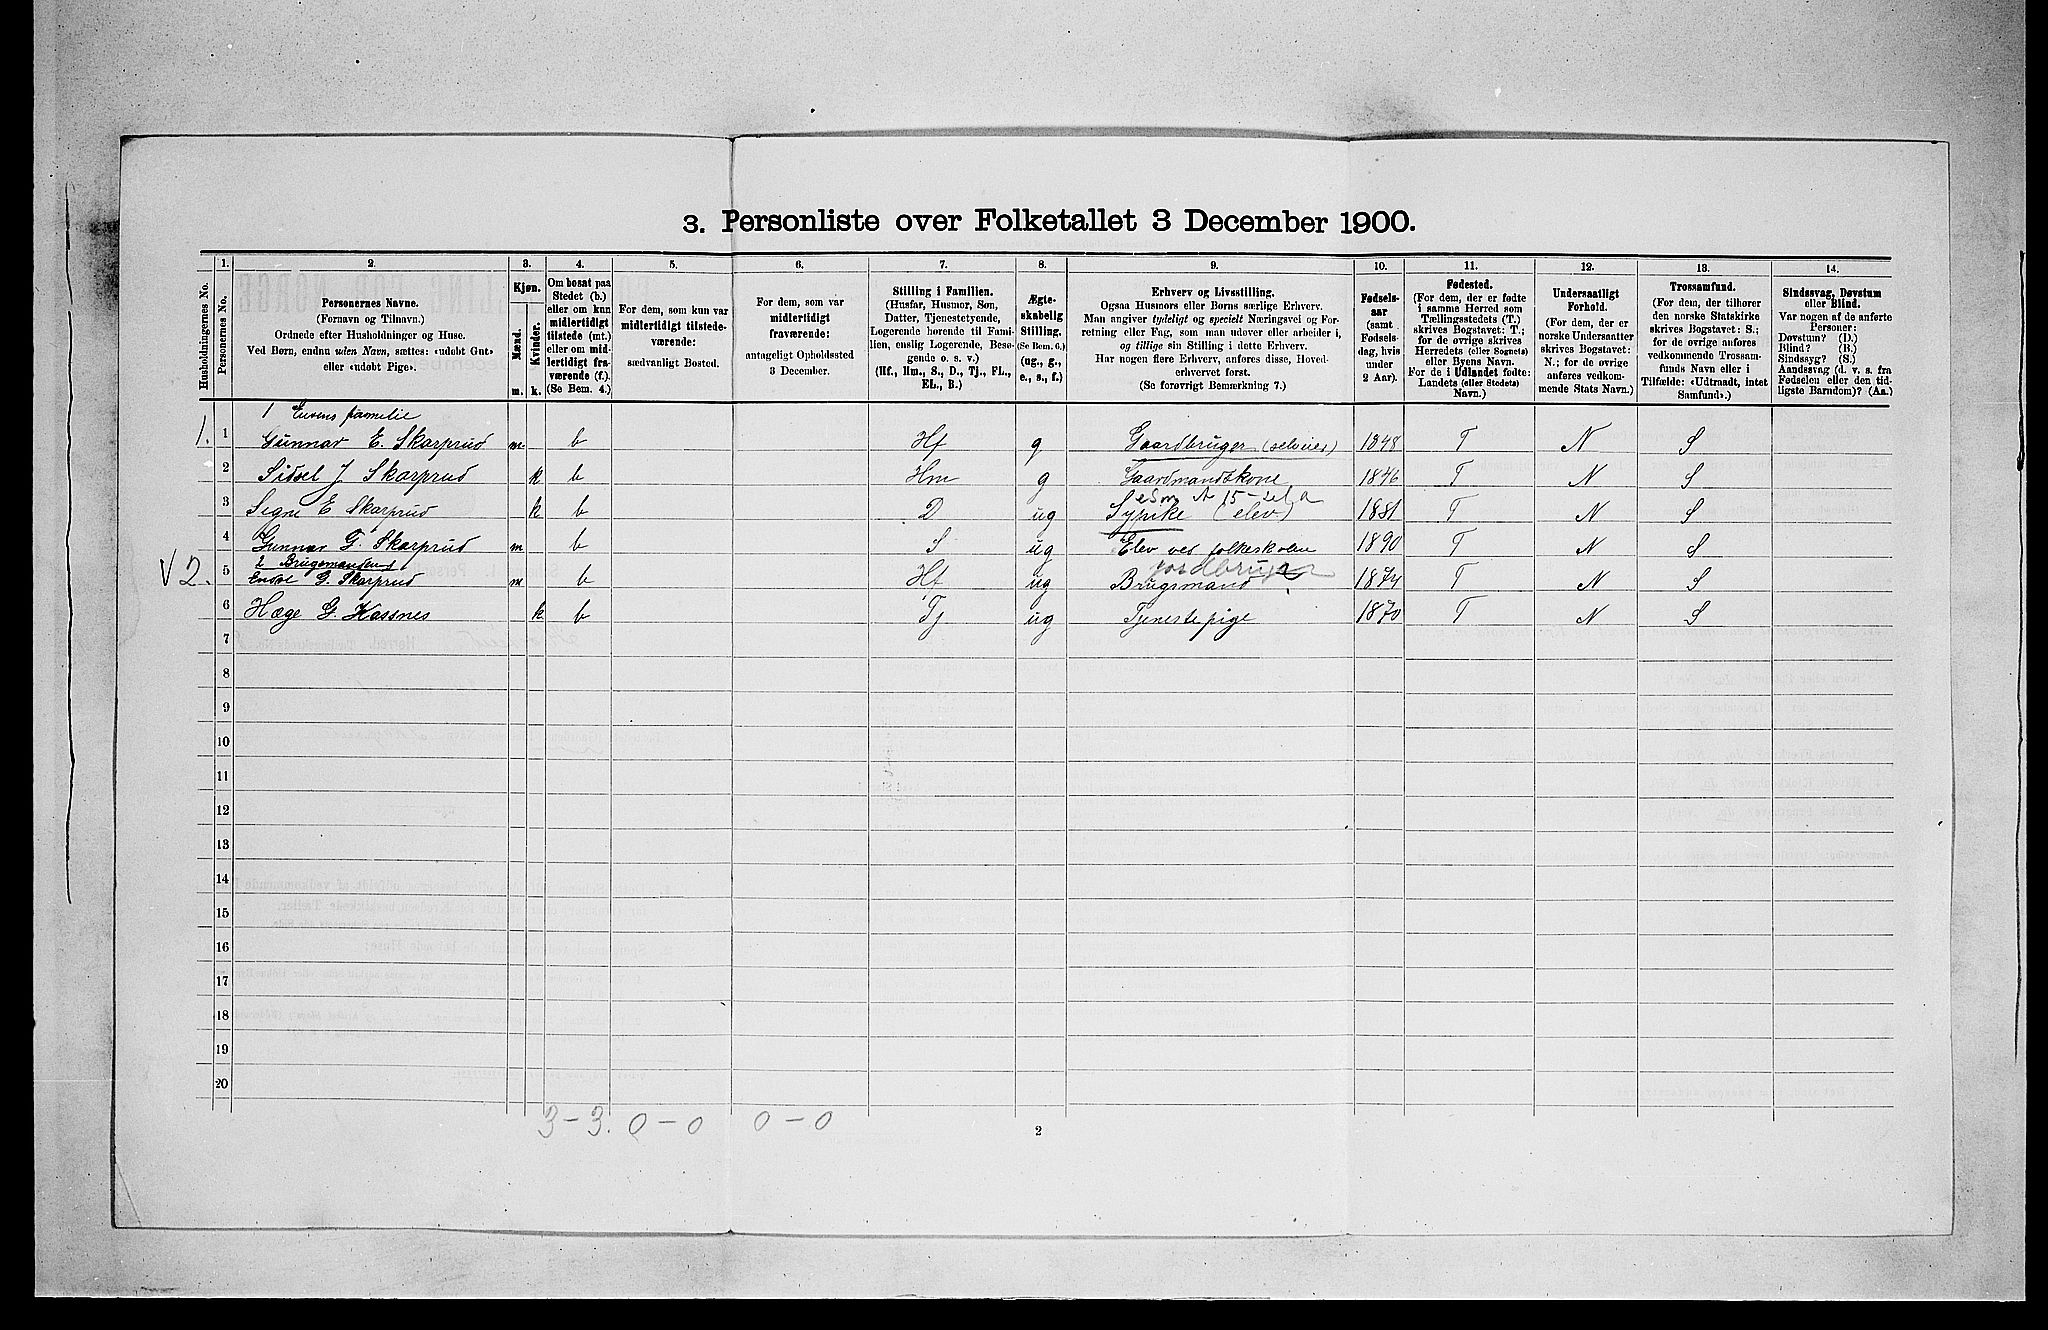 3. Personliste over Folketallet 3 December 1900.
Husholdningernes No.
1.
Personernes No.
2.
Personernes Navne.
(Fornavn og Tilnavn.)
Ordnede efter Husholdninger og Huse.
Ved Børn, endnu uden Navn, sættes: «udøbt Gut»
eller «udøbt Pige».
3.
Kjøn.
Mænd.
Kvinder.
m. k.
4.
Om bosat paa
Stedet (b.)
eller om kun
midlertidigt
tilstede (mt.)
eller om mid-
lertidigt fra-
værende (f.)
(Se Bem. 4.)
5.
For dem, som kun var
midlertidigt tilstede-
værende:
sædvanligt Bosted.
6.
For dem, som var
midlertidigt
fraværende:
antageligt Opholdssted
3 December.
7.
Stilling i Familien.
(Husfar, Husmor, Søn,
Datter, Tjenestetyende,
Logerende hørende til Fami-
lien, enslig Logerende, Besø-
gende o. s. v.)
(Hf., Hm., S., D., Tj., FL.,
EL., B.)
8.
Ægte-
skabelig
Stilling.
(Se Bem. 6.)
(ug., g.,
e., s., f.)
9.
Erhverv og Livsstilling.
Ogsaa Husmors eller Børns særlige Erhverv.
Man angiver tydeligt og specielt Næringsvei og For-
retning eller Fag, som man udøver eller arbeider i,
og tillige sin Stilling i dette Erhverv.
Har nogen flere Erhverv, anføres disse, Hoved-
erhvervet først.
(Se forøvrigt Bemærkning 7.)
10.
Fødsels-
aar
(samt
Fødsels-
dag, hvis
under
2 Aar).
11.
Fødested.
(For dem, der er fødte
i samme Herred som
Tællingsstedets (T.)
skrives Bogstavet: T.;
for de øvrige skrives
Herredets (eller Sognets)
eller Byens Navn.
For de i Udlandet fødte:
Landets (eller Stedets)
Navn.)
12.
Undersaatligt
Forhold.
(For dem, der er
norske Undersaatter
skrives Bogstavet:
N.; for de øvrige
anføres vedkom-
mende Stats Navn.)
13.
Trossamfund.
(For dem, der tilhører
den norske Statskirke
skrives Bogstavet: S.;
for de øvrige anføres
vedkommende Trossam-
funds Navn eller i
Tilfælde: «Udtraadt, intet
Samfund».)
14.
Sindssvag, Døvstum
eller Blind.
Var nogen af de anførte
Personer:
Døvstum? (D.)
Blind? (B.)
Sindssyg? (S.)
Aandssvag (d. v. s. fra
Fødselen eller den tid-
ligste Barndom)? (Aa.)
1 familie
1. 1 Gunnar E. Skarprud m b Hf g Gaardbruger (selveier) 1848 T N S
2 Sidsel J Skarprud k b Hm g Gaardmandskone 1846 T N S
3 Signe E Skarprud k b D ug Sypike (elev) 1881 T N S
4 Gunnar G. Skarprud m b S ug Elev ved folkeskolen 1890 T N S
2 Brugsmandens
V 2. 5 G. Skarprud m b Hf ug Brugsmand jordbruger 1874 T N S
6 Hæge G. Kassnes k b Tj ug Tjenestepige 1870 T N S
7
8
9
10
11
12
13
14
15
16
17
18
19
20
3-3. 0-0 0-0
2